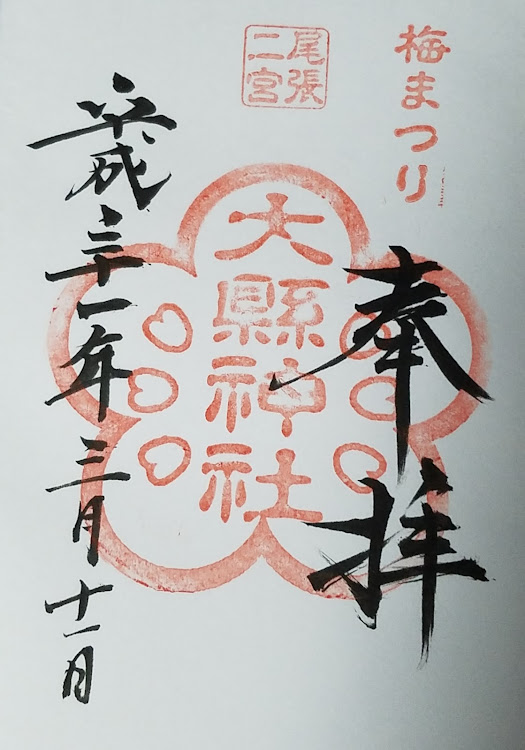 梅まつり
奉拝
尾張
二宮
大縣神社
平成三十一年三月十一日